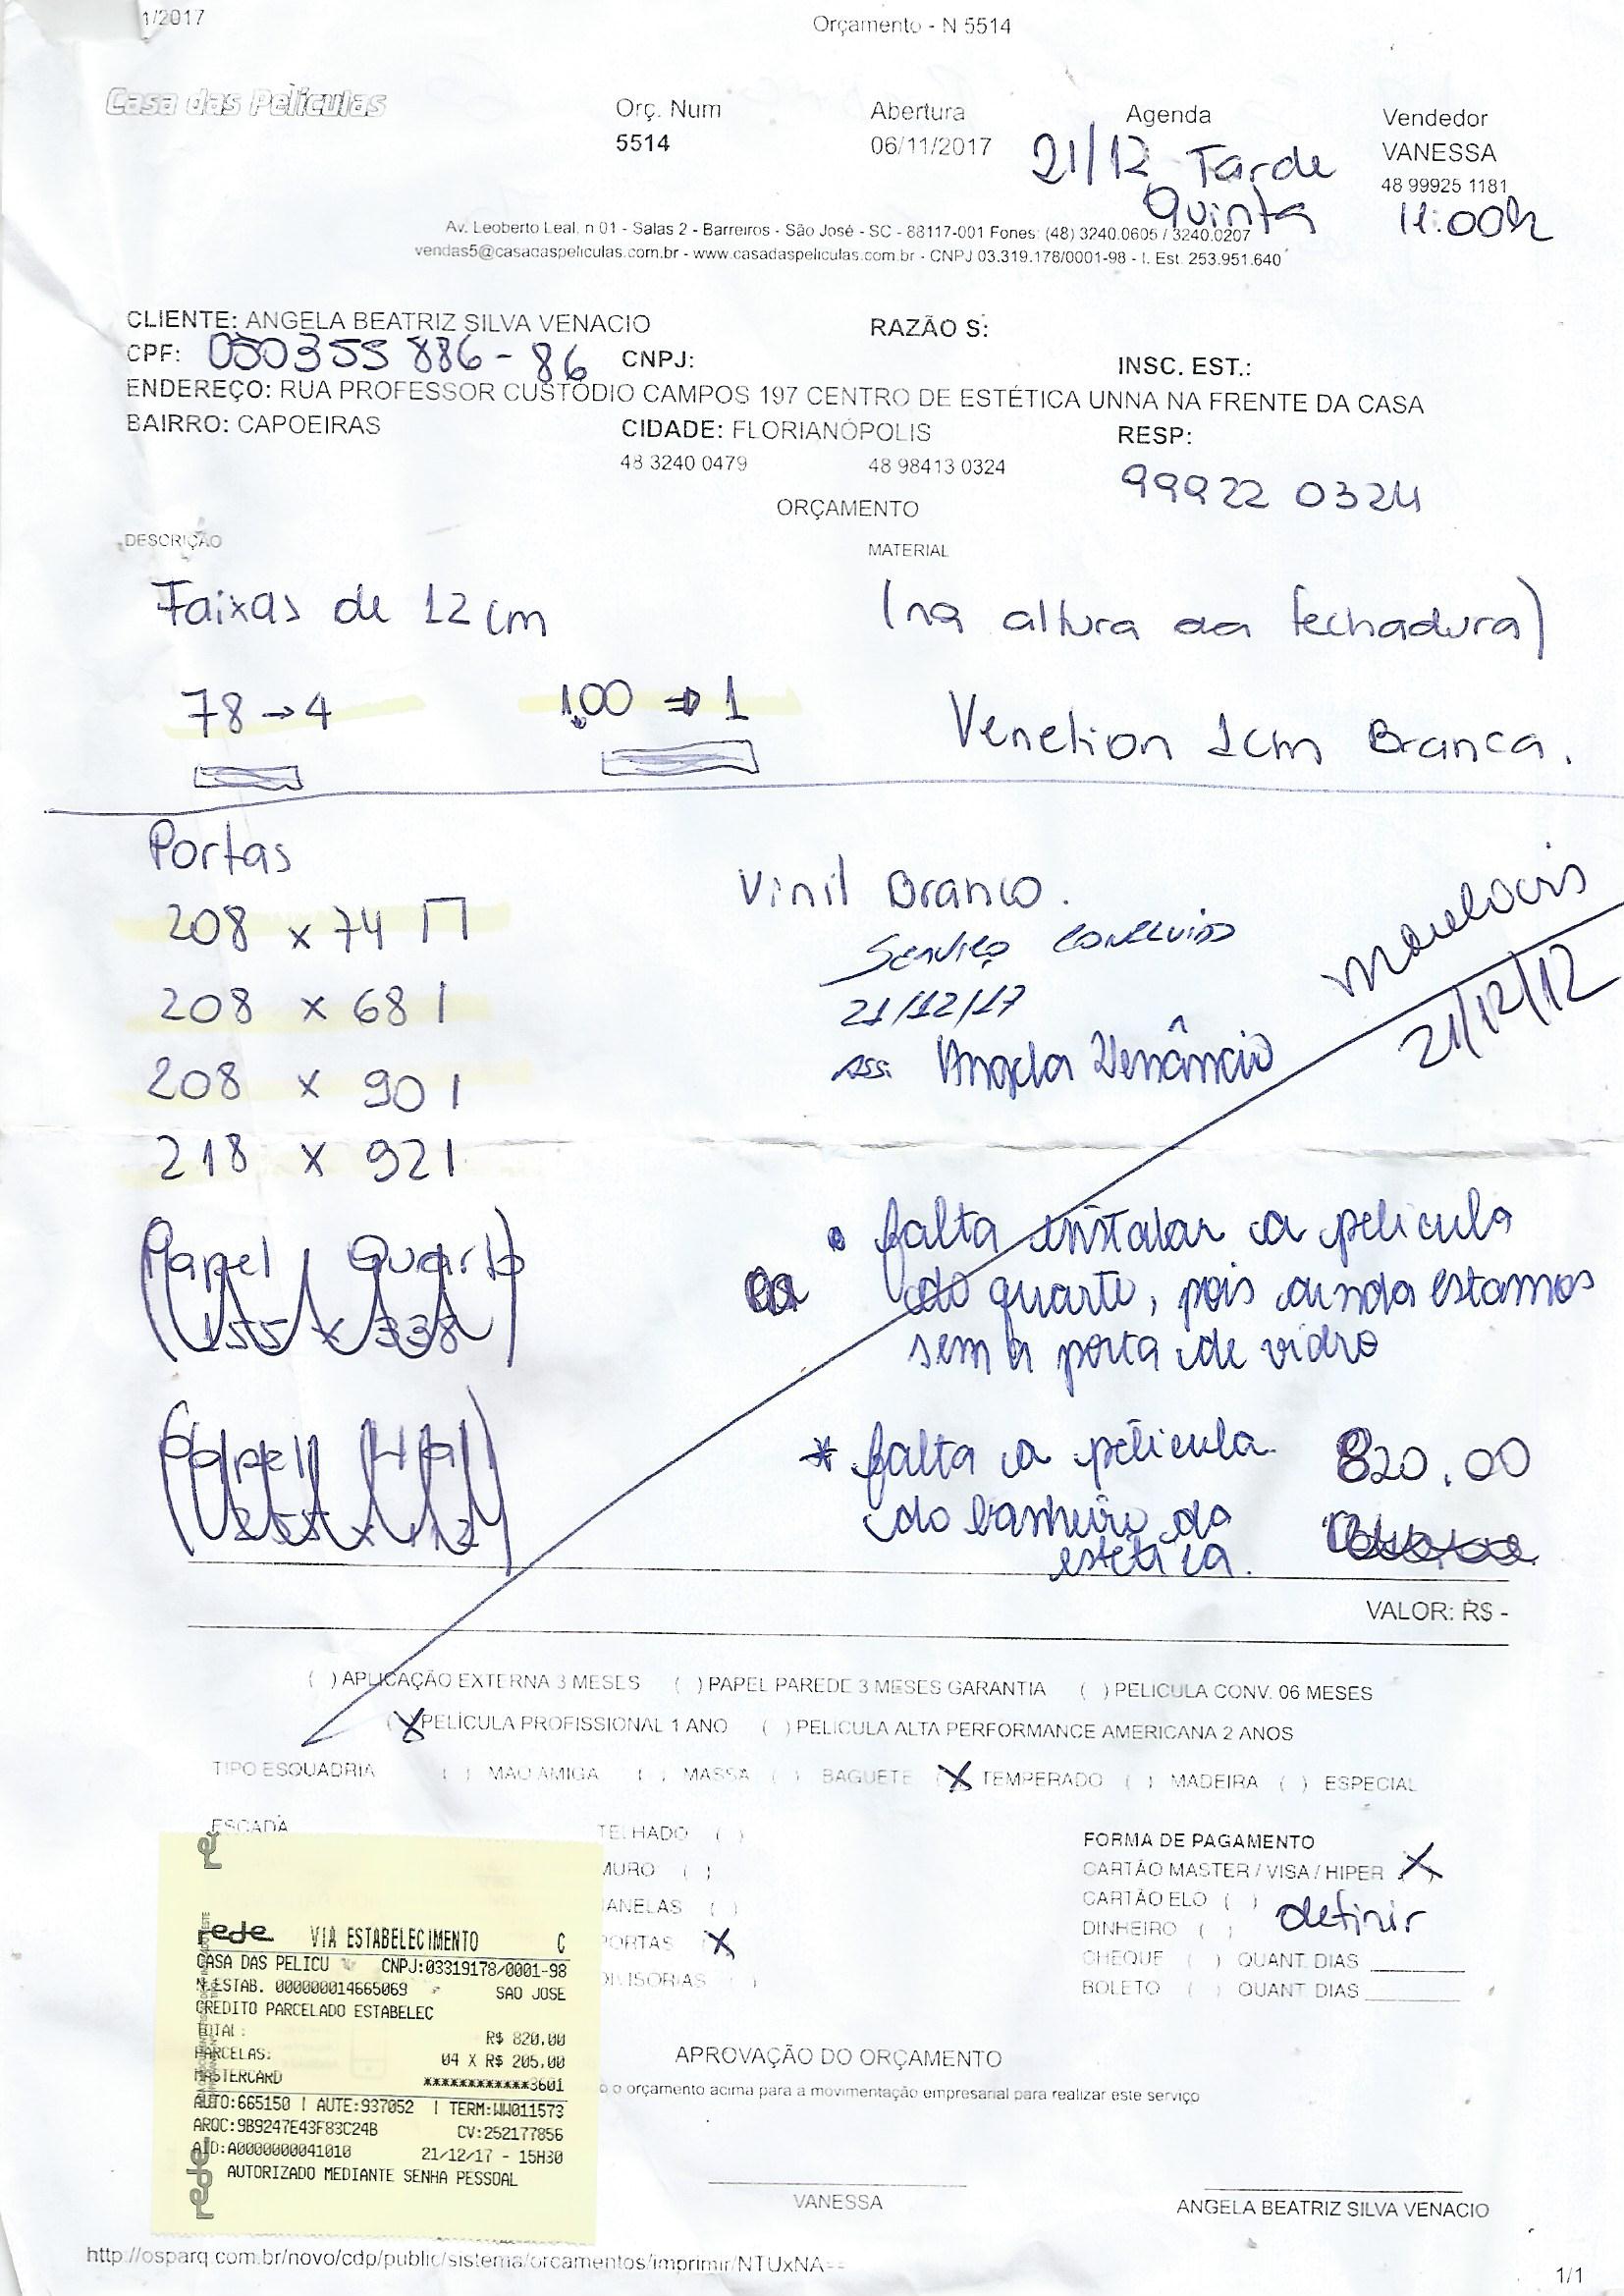 1/2017
Orçamento - N 5514
Casa das Películas
Orç. Num
5514
Abertura
06/11/2017
Agenda
21/12 Tarde
Quinta
Vendedor
VANESSA
48 99925 1181
11:00h
Av. Leoberto Leal, n 01 - Salas 2 - Barreiros - São José - SC - 88117-001 Fones: (48) 3240.0605 / 3240.0207
vendas5@casadaspeliculas.com.br - www.casadaspeliculas.com.br - CNPJ 03.319.178/0001-98 - I. Est. 253.951.640
CLIENTE: ANGELA BEATRIZ SILVA VENACIO RAZÃO S:
CPF: 050355886-86 CNPJ: INSC. EST.:
ENDEREÇO: RUA PROFESSOR CUSTÓDIO CAMPOS 197 CENTRO DE ESTÉTICA UNNA NA FRENTE DA CASA
BAIRRO: CAPOEIRAS CIDADE: FLORIANÓPOLIS RESP:
48 3240 0479 48 98413 0324 99922 0324
ORÇAMENTO
DESCRIÇÃO MATERIAL
Faixas de 12 cm (na altura da fechadura)
78 → 4 1,00 ⇒ 1 Venetion 1cm Branca.
Portas
Vinil Branco.
208 x 74 Π
Serviço concluído
208 x 68 |
21/12/17
21/12/12
208 x 90 |
Ass: Angela Venâncio
218 x 92 |
Papel Quarto
155 x 338
• falta instalar a pelicula
do quarto, pois ainda estamos
sem a porta de vidro
Papel Hal
* falta a pelicula 820,00
do banheiro da
estética.
VALOR: R$ -
( ) APLICAÇÃO EXTERNA 3 MESES ( ) PAPEL PAREDE 3 MESES GARANTIA ( ) PELICULA CONV. 06 MESES
(X) PELÍCULA PROFISSIONAL 1 ANO ( ) PELICULA ALTA PERFORMANCE AMERICANA 2 ANOS
TIPO ESQUADRIA ( ) MAO AMIGA ( ) MASSA ( ) BAGUETE (X) TEMPERADO ( ) MADEIRA ( ) ESPECIAL
ESCADA
TELHADO ( )
MURO ( )
JANELAS ( )
PORTAS X
DIVISORIAS ( )
FORMA DE PAGAMENTO
CARTÃO MASTER / VISA / HIPER X
CARTÃO ELO ( )
definir
DINHEIRO ( )
CHEQUE ( ) QUANT. DIAS
BOLETO ( ) QUANT. DIAS
rede VIA ESTABELECIMENTO C
CASA DAS PELICU CNPJ:03319178/0001-98
N.ESTAB. 000000014665069 SAO JOSE
CREDITO PARCELADO ESTABELEC
TOTAL: R$ 820,00
PARCELAS: 04 X R$ 205,00
MASTERCARD ************3601
AUTO:665150 | AUTE:937052 | TERM:WW011573
ARQC:9B9247E43F83C24B CV:252177856
AID:A0000000041010 21/12/17 - 15H30
AUTORIZADO MEDIANTE SENHA PESSOAL
rede
APROVAÇÃO DO ORÇAMENTO
o orçamento acima para a movimentação empresarial para realizar este serviço
VANESSA
ANGELA BEATRIZ SILVA VENACIO
http://osparq.com.br/novo/cdp/public/sistema/orcamentos/imprimir/NTUxNA==
1/1